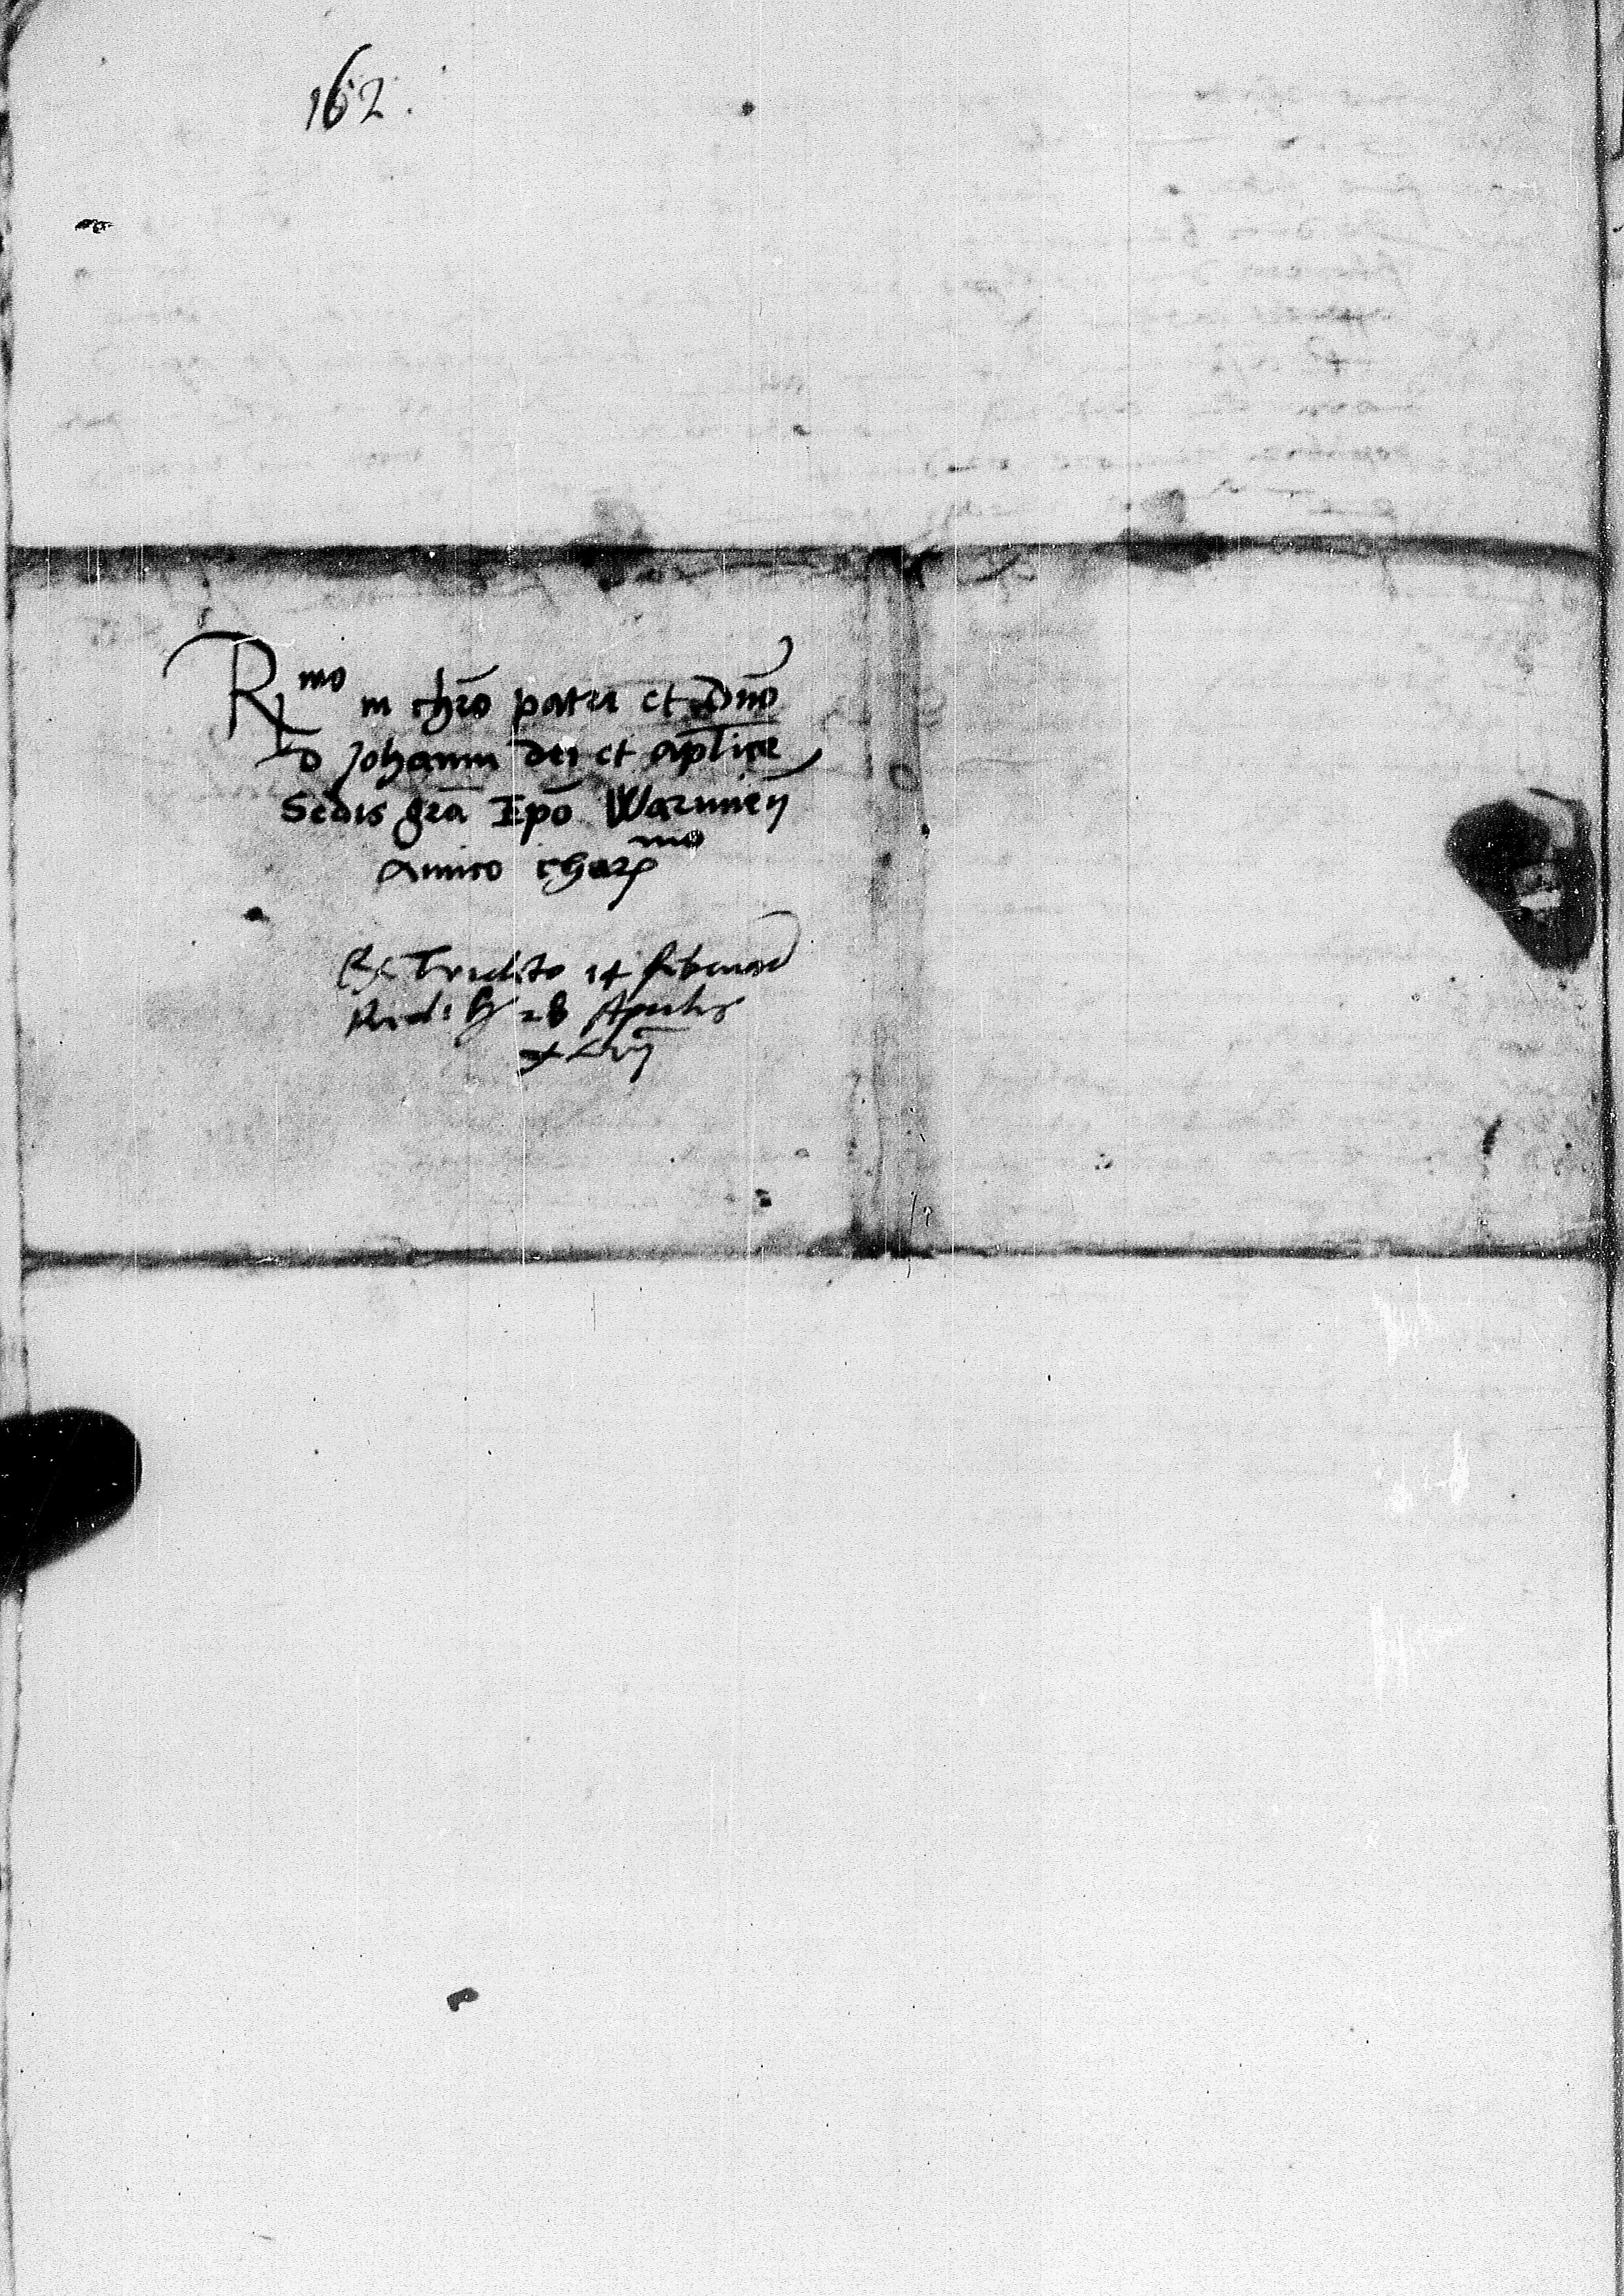 162.
R mo in chr̄o patri et Dn̄o
D Johanni dei et ap̄lice
Sedis gr̄a Ep̄o Warmień
amico char mo
Ex Tridēto 14 februar
28 Aprilis
XLvij